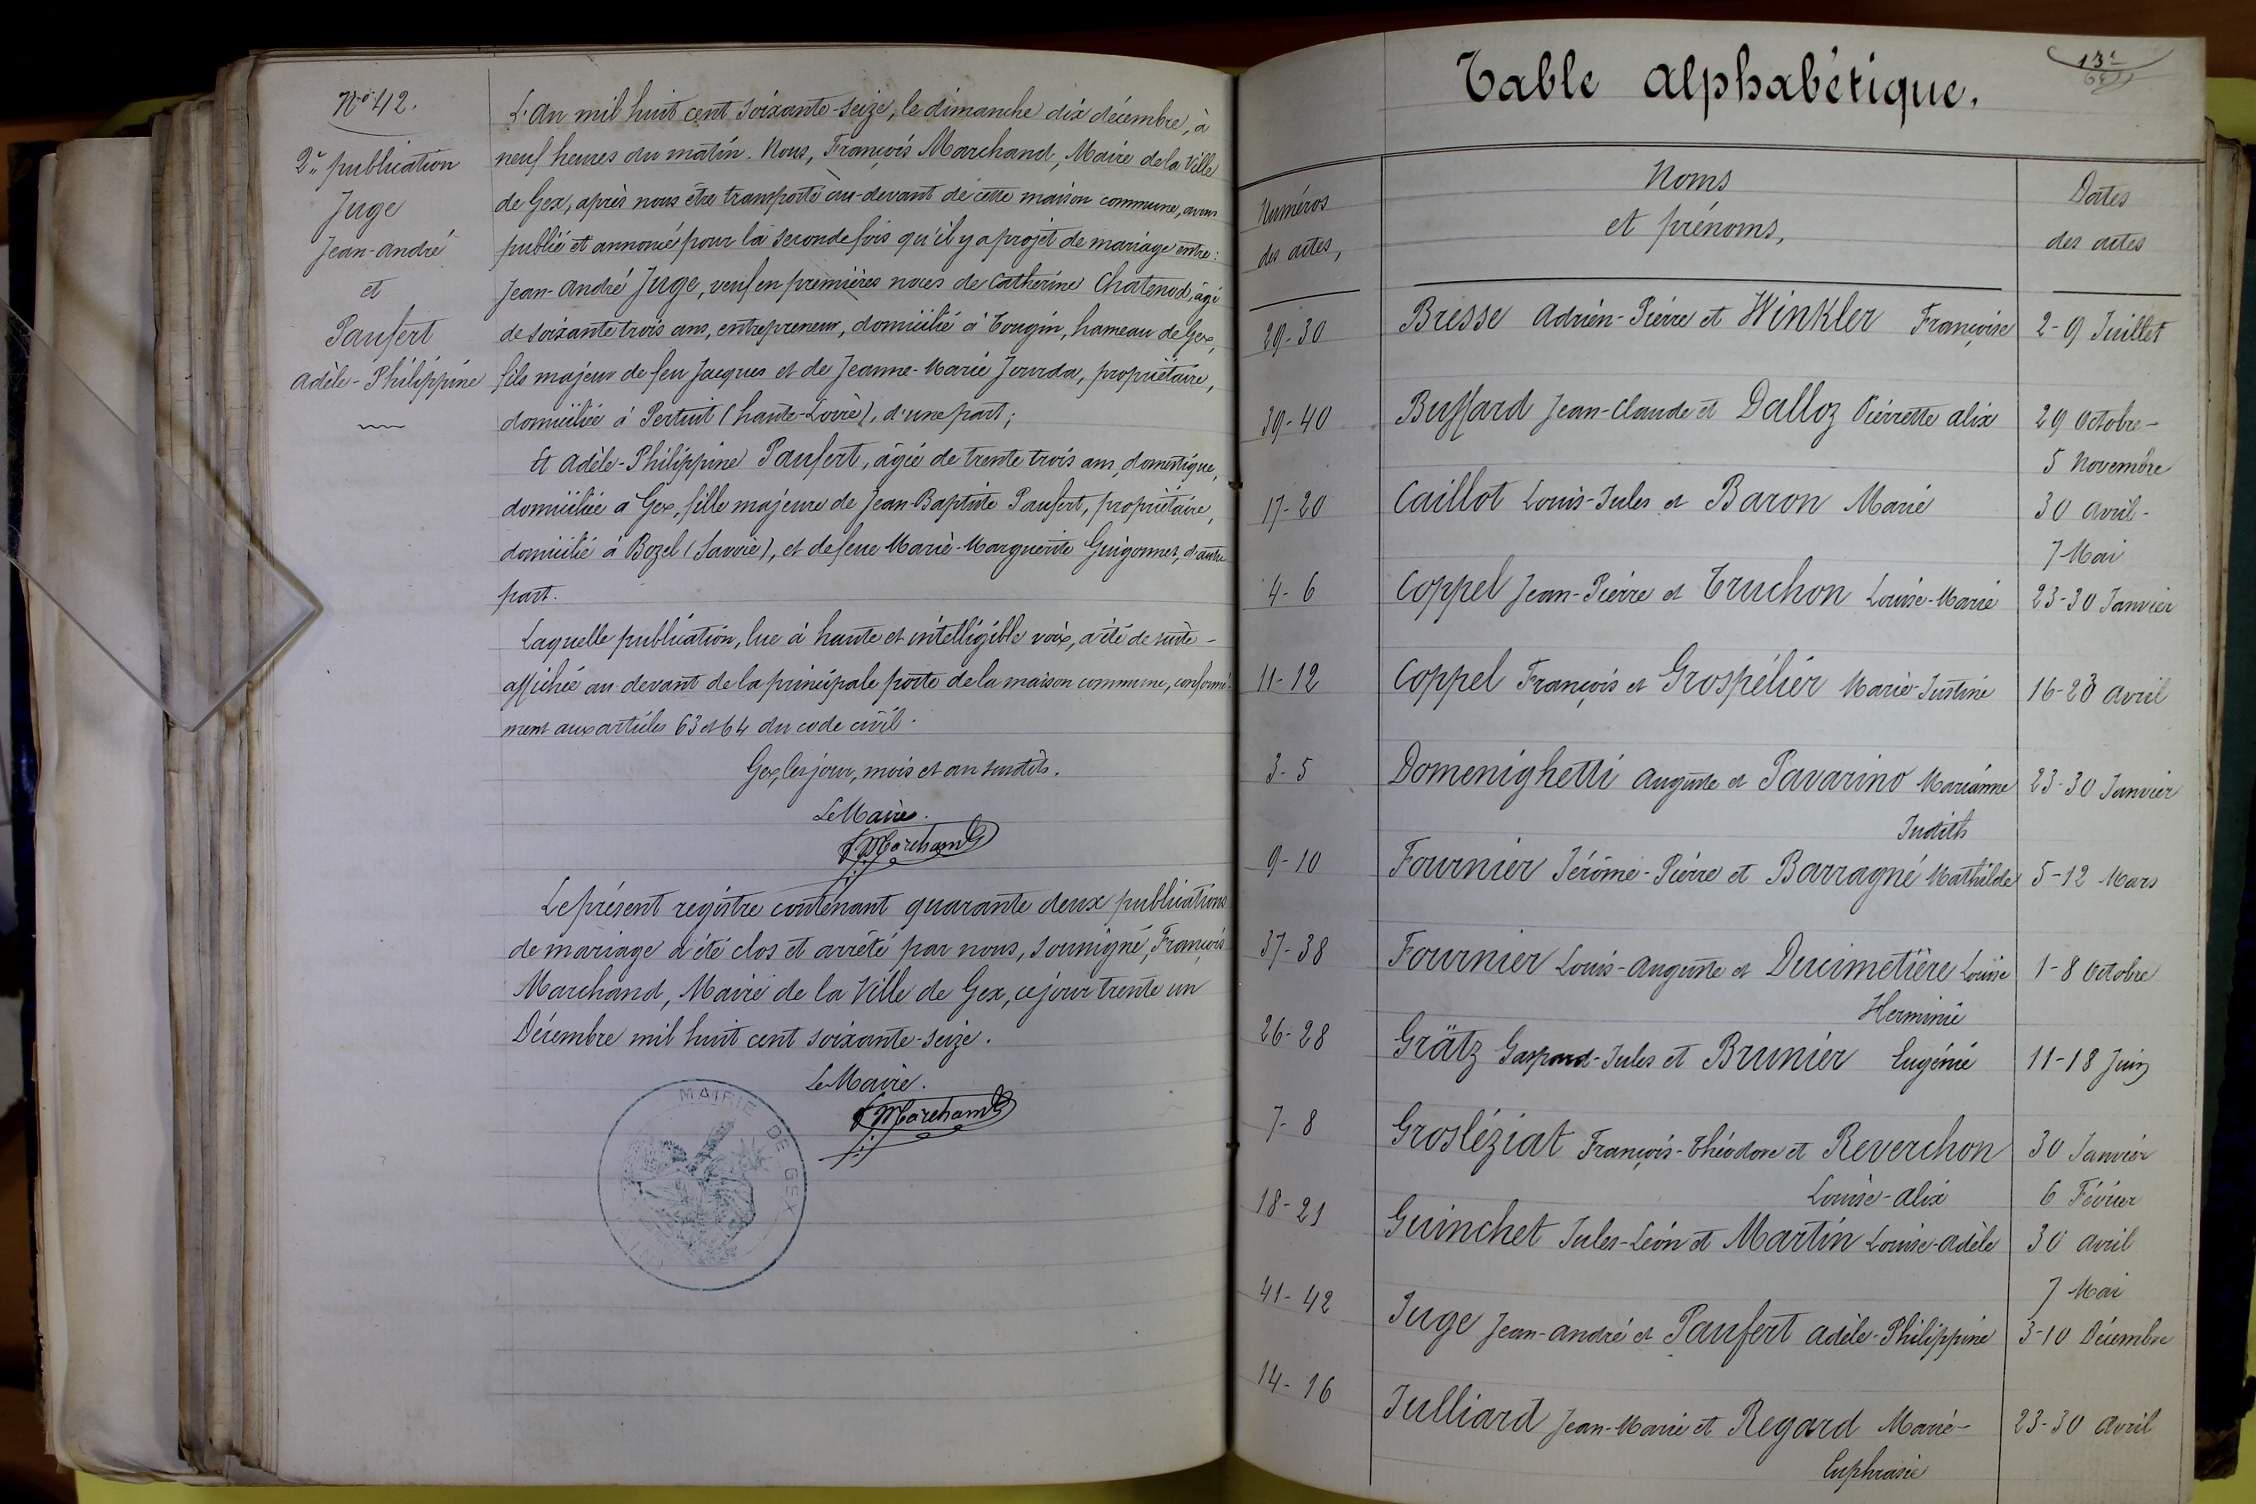 N° 42.
2e publication
Juge
Jean-André
et
Paufert
Adèle-Philippine
L'An mil huit cent soixante-seize, le dimanche dix décembre, à
neuf heures du matin. Nous, François Marchand, Maire de la Ville
de Gex, après nous être transporté au-devant de cette maison commune, avons
publié et annoncé pour la seconde fois qu'il y a projet de mariage entre:
Jean-André Juge, veuf en premières noces de Catherine Chatenod, âgé
de soixante trois ans, entrepreneur, domicilié à Tougin, hameau de Gex,
fils majeur de feu Jacques et de Jeanne-Marie Jourda, propriétaire,
domiciliée à Pertuit (haute-Loire), d'une part;
Et Adèle-Philippine Paufert, âgée de trente trois ans, domestique,
domiciliée à Gex, fille majeure de Jean-Baptiste Paufert, propriétaire,
domicilié à Bozel (Savoie), et de feue Marie-Marguerite Guigonnet, d'autre
part.
Laquelle publication, lue à haute et intelligible voix, a été de suite-
affichée au-devant de la principale porte de la maison commune, conformé-
ment aux articles 63 et 64 du code civil.
Gex, les jour, mois et an susdits.
Le Maire.
F. Marchand
Le présent registre contenant quarante deux publications
de mariage a été clos et arrêté par nous, soussigné, François
Marchand, Maire de la Ville de Gex, ce jour trente un
Décembre mil huit cent soixante-seize.
Le Maire.
F. Marchand
MAIRIE DE GEX
Table Alphabétique.
Numéros
des actes,
Noms
et prénoms,
Dates
des actes
29-30 Bresse Adrien-Pierre et Winkler Françoise 2-9 Juillet
39-40 Buffard Jean-Claude et Dalloz Pierrette Alix 29 Octobre-
5 Novembre
17-20 Caillot Louis-Jules et Baron Marie 30 Avril-
7 Mai
4-6 Coppel Jean-Pierre et Truchon Louise-Marie 23-30 Janvier
11-12 Coppel François et Grospélier Marie-Justine 16-23 Avril
3-5 Domenighetti Auguste et Pavarino Marianne 23-30 Janvier
Judith
9-10 Fournier Jérôme-Pierre et Barragné Mathilde 5-12 Mars
37-38 Fournier Louis-Auguste et Ducimetière Louise 1-8 Octobre
Herminie
26-28 Grätz Gaspard-Jules et Brunier Eugénie 11-18 Juin
7-8 Grosléziat François-Théodore et Reverchon 30 Janvier
Louise-Alix 6 Février
18-21 Guinchet Jules-Léon et Martin Louise-Adèle 30 Avril
7 Mai
41-42 Juge Jean-André et Paufert Adèle-Philippine 3-10 Décembre
14-16 Julliard Jean-Marie et Regard Marie- 23-30 Avril
Euphrasie